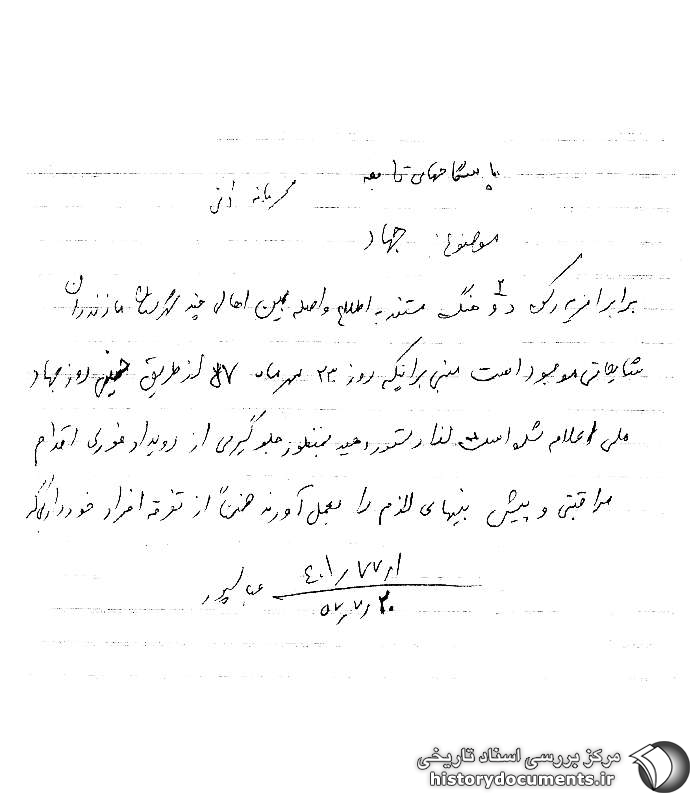 پاسگاههای تابعه
محرمانه آنی
موضوع: جهاد
برابر امریه رکن ۲ و هنگ مستند به اطلاع واصله بین اهالی چند شهرستان مازندران
شایعاتی موجود است مبنی بر اینکه روز ۲۳ مهرماه ۵۷ از طریق خمینی روز جهاد
ملی اعلام شده است لذا دستور دهید بمنظور جلوگیری از رویداد فوری اقدام
مراقبتی و پیش بینهای لازم را بعمل آورند ضمناً از تفرقه افراد خودداری
۴۰۱/۷۷/۱ر
۵۷/۷/۲۰
مرکز بررسی اسناد تاریخی
historydocuments.ir